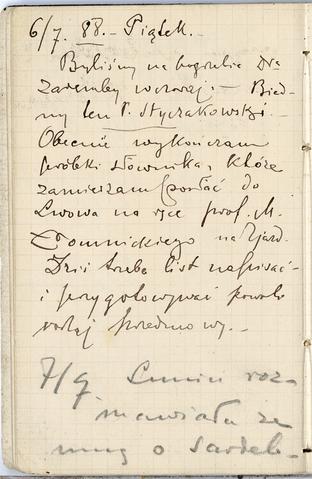 6/7. 88. – Piątek. –
Byliśmy na pogrzebie Dra
Zaremby wczoraj. – Bied-
ny ten P. Styczakowski. –
Obecnie wykończam
próbki słownika, które
zamierzam posłać do
Lwowa na ręce prof. M.
Łomnickiego na Zjazd.
Dziś trzeba list napisać
i przygotowywać
przedmowy. –
7/7 Lunin roz-
mawiała ze
mną o Sardel-